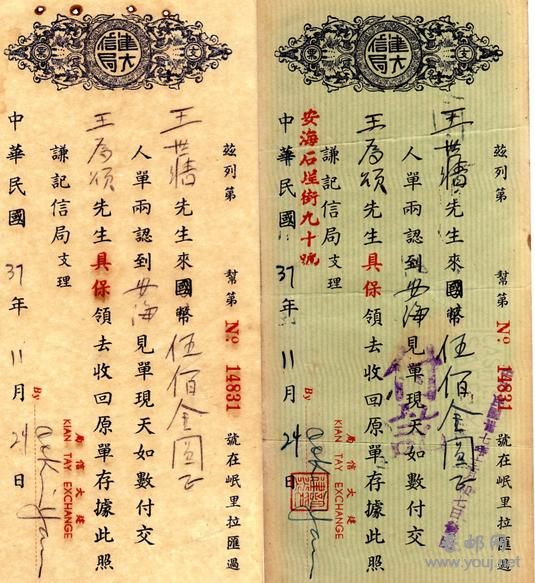 建大信局
支
票
茲列第 幫第 No 14831 號在岷里拉匯過
王世牆先生來國幣伍佰金圓正
人單兩認到安海見單現天如數付交
王為頌先生具保領去收回原單存據此照
謙記信局支理
中華民國37年11月24日
建大信局
KIAN TAY EXCHANGE
By
建大信局
支
票
茲列第 幫第 No 14831 號在岷里拉匯過
王世牆先生來國幣伍佰金圓正
人單兩認到安海見單現天如數付交
王為頌先生具保領去收回原單存據此照
謙記信局支理
安海石埕街九十號
中華民國37年11月24日
建大信局
KIAN TAY EXCHANGE
By
www.youj.net